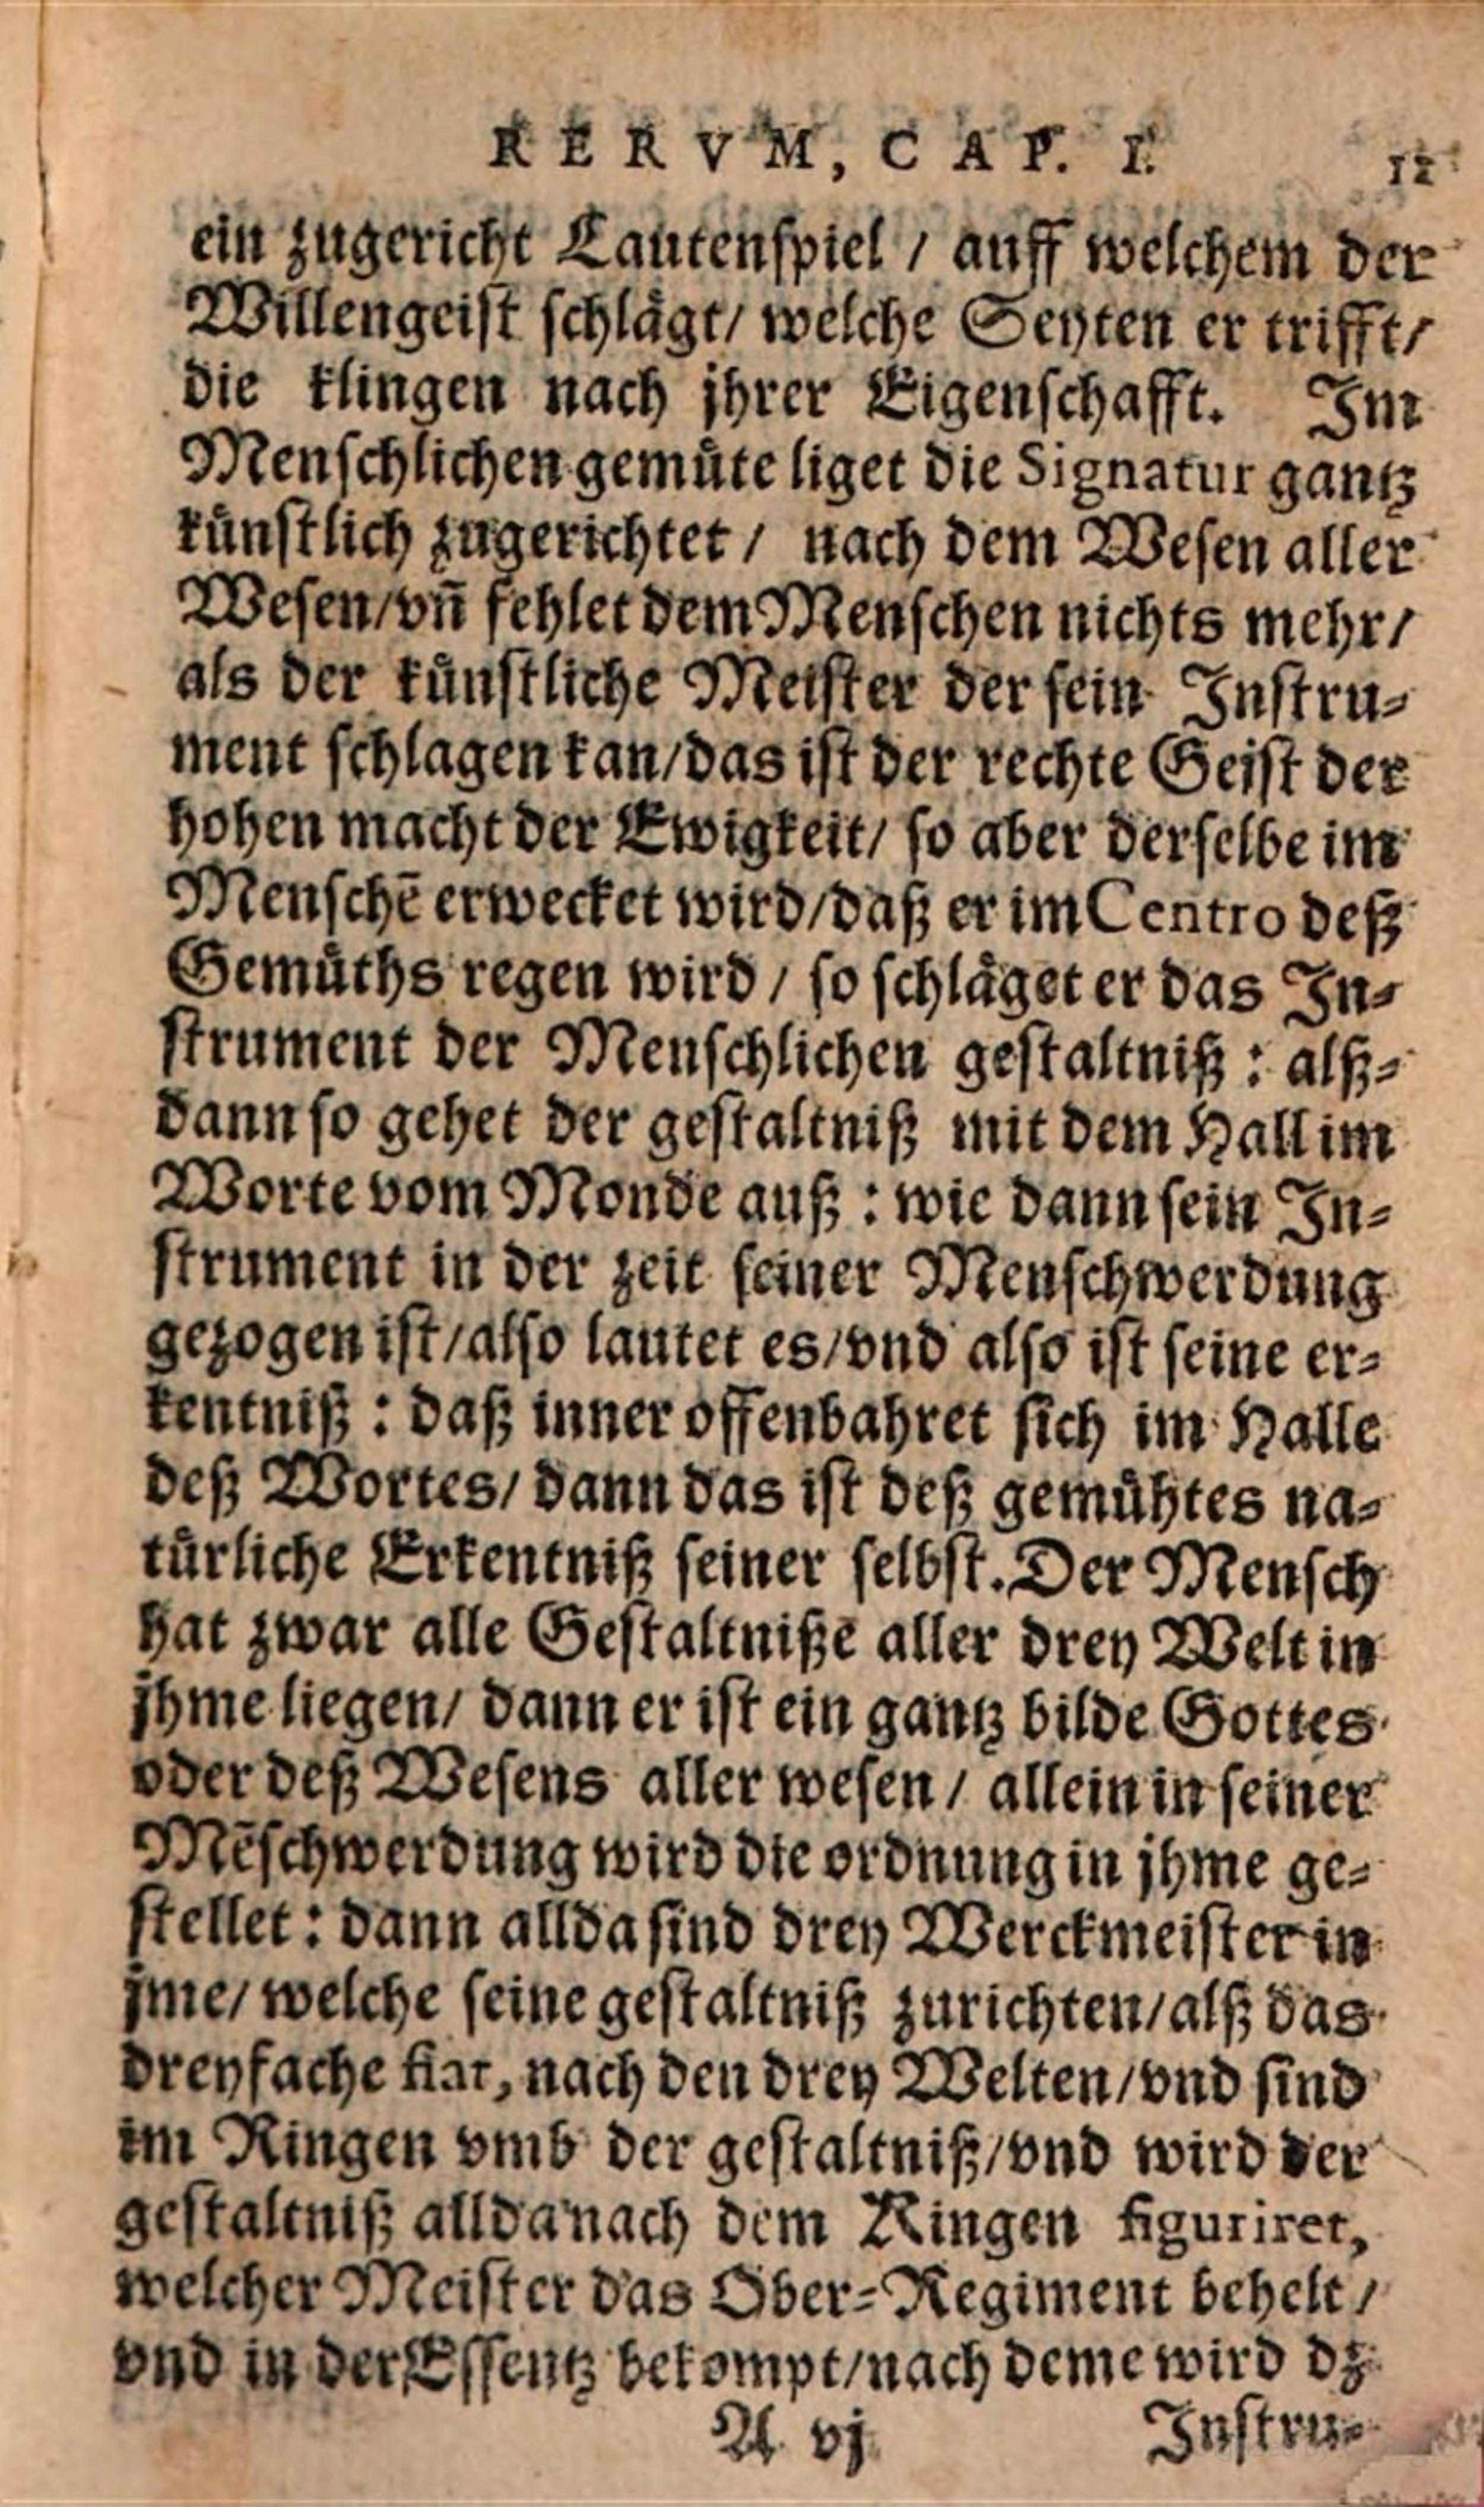 RERVM, CAP. I. 12
ein zugericht Lautenspiel / auff welchem der
Willengeist schlågt/ welche Seyten er trifft/
die klingen nach jhrer Eigenschafft. Im
Menschlichen gemůte liget die Signatur gantz
kůnstlich zugerichtet / nach dem Wesen aller
Wesen/vñ fehlet dem Menschen nichts mehr/
als der kůnstliche Meister der sein Instru-
ment schlagen kan/das ist der rechte Geist der
hohen macht der Ewigkeit/ so aber derselbe im
Menschē erwecket wird/daß er im Centro deß
Gemůths regen wird / so schlåget er das In-
strument der Menschlichen gestaltniß : alß-
dann so gehet der gestaltniß mit dem Hall im
Worte vom Monde auß : wie dann sein In-
strument in der zeit seiner Menschwerdung
gezogen ist/also lautet es/vnd also ist seine er-
kentniß : daß inner offenbahret sich im Halle
deß Wortes/ dann das ist deß gemůhtes na-
tůrliche Erkentniß seiner selbst. Der Mensch
hat zwar alle Gestaltniße aller drey Welt in
jhme liegen/ dann er ist ein gantz bilde Gottes
oder deß Wesens aller wesen / allein in seiner
Mēschwerdung wird die ordnung in jhme ge-
stellet : dann allda sind drey Werckmeister in
jme/ welche seine gestaltniß zurichten/alß das
dreyfache fiat, nach den drey Welten/vnd sind
im Ringen vmb der gestaltniß/vnd wird der
gestaltniß allda nach dem Ringen figuriret,
welcher Meister das Ober-Regiment behelt /
vnd in der Essentz bekompt/nach deme wird dz
A vj Instru-